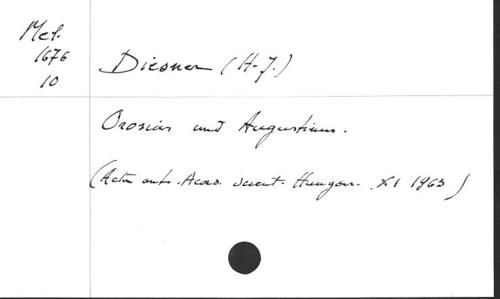 Mel.
1676
10
Diesner (H-J.)
Orosius und Augustinus.
(Acta ant. Acad. scient. Hungar. XI 1963)